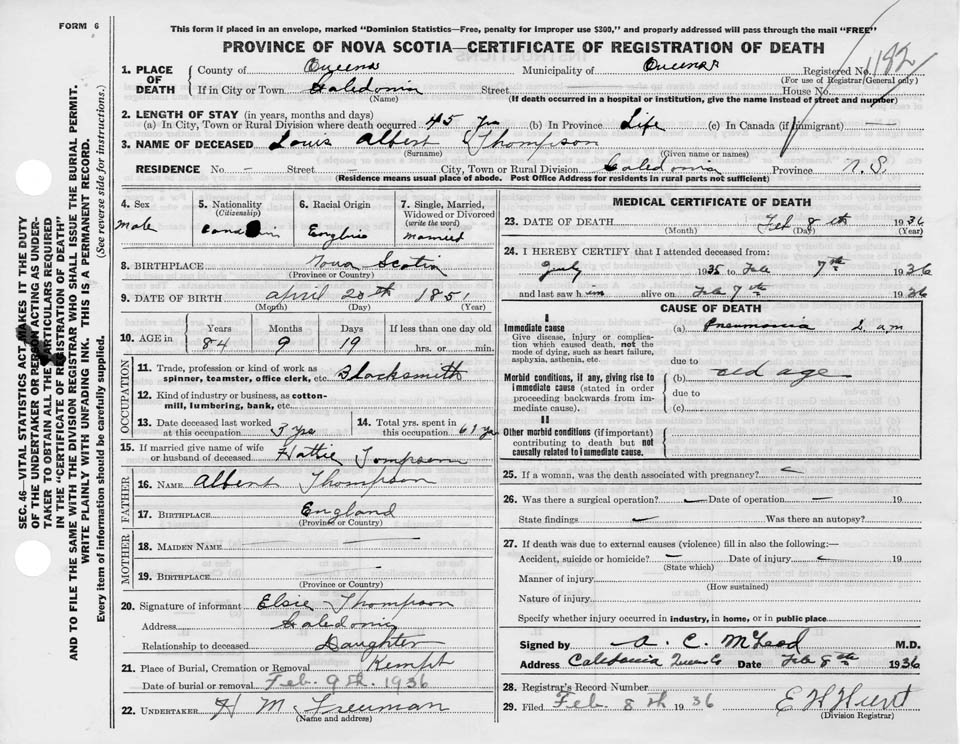 FORM 6
This form if placed in an envelope, marked "Dominion Statistics—Free, penalty for improper use $300," and properly addressed will pass through the mail "FREE"
PROVINCE OF NOVA SCOTIA—CERTIFICATE OF REGISTRATION OF DEATH
1. PLACE OF DEATH County of Queens Municipality of Queens Registered No. 1182
(For use of Registrar General only)
If in City or Town Caledonia Street House No.
(Name) (If death occurred in a hospital or institution, give the name instead of street and number)
2. LENGTH OF STAY (in years, months and days)
(a) In City, Town or Rural Division where death occurred 45 yrs (b) In Province Life (c) In Canada (if immigrant) —
3. NAME OF DECEASED Louis Albert Thompson
(Surname) (Given name or names)
RESIDENCE No. – Street – City, Town or Rural Division Caledonia Province N.S.
(Residence means usual place of abode. Post Office Address for residents in rural parts not sufficient)
4. Sex 5. Nationality 6. Racial Origin 7. Single, Married, Widowed or Divorced
(Citizenship) (write the word)
male English married
8. BIRTHPLACE Nova Scotia
(Province or Country)
9. DATE OF BIRTH april 20th 1851
(Month) (Day) (Year)
10. AGE in Years Months Days If less than one day old
84 9 19 hrs. or min.
OCCUPATION
11. Trade, profession or kind of work as spinner, teamster, office clerk, etc. Blacksmith
12. Kind of industry or business, as cotton-mill, lumbering, bank, etc.
13. Date deceased last worked at this occupation 3 yrs 14. Total yrs. spent in this occupation
15. If married give name of wife or husband of deceased Hattie Tompson
FATHER
16. NAME Albert Thompson
17. BIRTHPLACE England
(Province or Country)
MOTHER
18. MAIDEN NAME —
19. BIRTHPLACE –
(Province or Country)
20. Signature of informant Elsie Thompson
Address Caledonia
Relationship to deceased Daughter
21. Place of Burial, Cremation or Removal Kempt
Date of burial or removal Feb. 9th. 1936
22. UNDERTAKER H M Freeman
(Name and address)
MEDICAL CERTIFICATE OF DEATH
23. DATE OF DEATH Feb 8th 1936
(Month) (Day) (Year)
24. I HEREBY CERTIFY that I attended deceased from:
July 1935 to Feb 7th 1936
and last saw h im alive on Feb 7th 1936
CAUSE OF DEATH
I
Immediate cause (a) Pneumonia
Give disease, injury or complication which caused death, not the mode of dying, such as heart failure, asphyxia, asthenia, etc.
due to
Morbid conditions, if any, giving rise to immediate cause (stated in order proceeding backwards from immediate cause). (b) old age
due to
(c)
II
Other morbid conditions (if important) contributing to death but not causally related to immediate cause.
25. If a woman, was the death associated with pregnancy?
26. Was there a surgical operation? Date of operation — 19
State findings Was there an autopsy?
27. If death was due to external causes (violence) fill in also the following:—
Accident, suicide or homicide? Date of injury 19
(State which)
Manner of injury
(How sustained)
Nature of injury
Specify whether injury occurred in industry, in home, or in public place
Signed by A. C. McLeod M.D.
Address Caledonia Queens Co Date Feb 8th 1936
28. Registrar's Record Number
29. Filed Feb. 8th 1936 E H Hunt
(Division Registrar)
SEC. 46—VITAL STATISTICS ACT MAKES IT THE DUTY
OF THE UNDERTAKER OR PERSON ACTING AS UNDER-
TAKER TO OBTAIN ALL THE PARTICULARS REQUIRED
IN THE "CERTIFICATE OF REGISTRATION OF DEATH"
AND TO FILE THE SAME WITH THE DIVISION REGISTRAR WHO SHALL ISSUE THE BURIAL PERMIT.
WRITE PLAINLY WITH UNFADING INK. THIS IS A PERMANENT RECORD.
Every item of information should be carefully supplied. (See reverse side for instructions.)